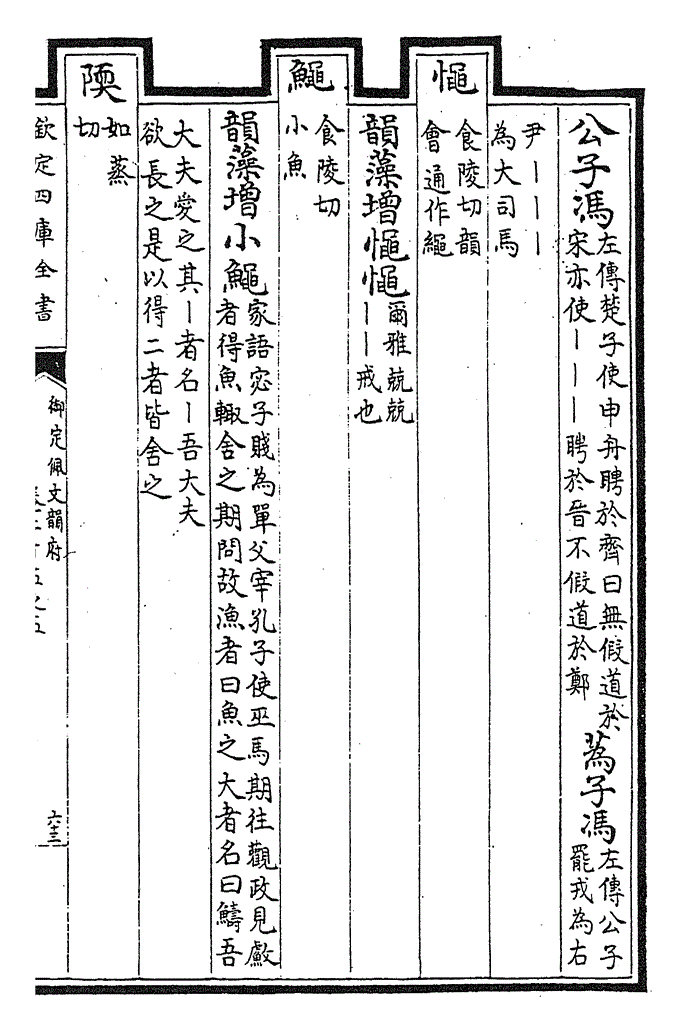 公子馮左傳楚子使申舟聘於齊曰無假道於
宋亦使丨丨丨聘於晉不假道於鄭
蒍子馮左傳公子
罷戎為右
尹丨丨丨
為大司馬
憴
食陵切韻
會通作繩
韻藻增憴憴爾雅兢兢
丨丨戒也
鱦
食陵切
小魚
韻藻增小鱦家語宓子賤為單父宰孔子使巫馬期往觀政見
者得魚輙舍之期問故漁者曰魚之大者名曰吾
大夫愛之其丨者名丨吾大夫
欲長之是以得二者皆舍之
陾
如蒸
切
欽定四庫全書
御定佩文韻府
六十三